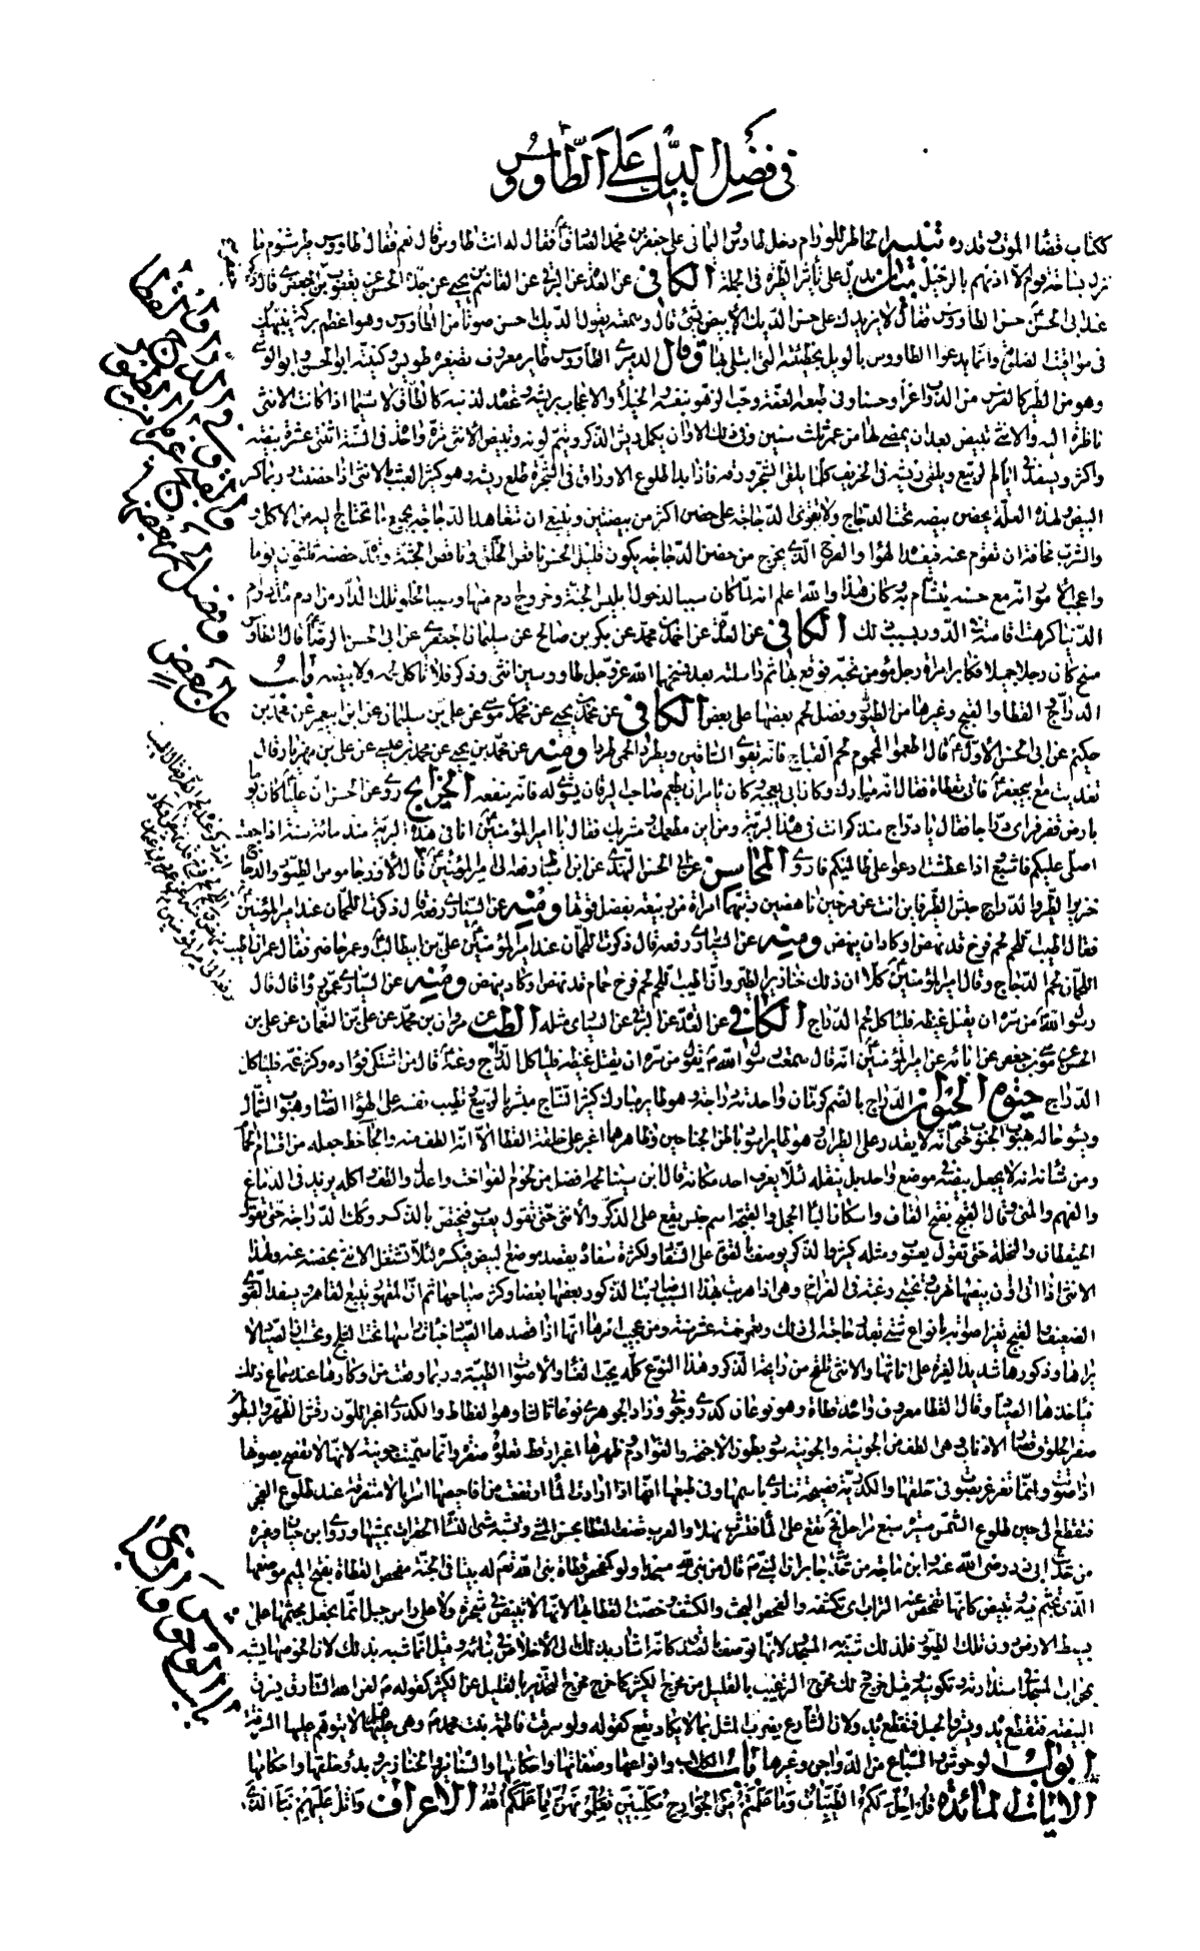 في فضل الديك على الطاوس
ككتاب قضاء الموت بقدره تنبيه الخاطر للورام دخل طاوس اليماني على جعفر بن محمد الصادق ع فقال له انت طاوس قال نعم فقال طاووس طير مشوم ما
نزل بساحة قوم الا آذنهم بالرحيل بيان يدل على تأثير الطيرة في الجملة الكافي عن العدة عن البرقي عن القاسم بن يحيى عن جده الحسن عن يعقوب بن جعفر قال ذكر
عند ابي الحسن حسن الطاووس فقال لا يزيدك على حسن الديك الابيض شيء قال وسمعته يقول الديك احسن صوتا من الطاووس وهو اعظم بركة ينبهك
في مواقيت الصلوة وانما يدعو الطاووس بالويل بخطيئته التي ابتلي بها وقال الدميري الطاووس طاير معروف تصغيره طويس وكنيته ابو الحسن وابو الوشي
وهو من الطير كالفرس من الدواب عزا وحسنا وفي طبعه العفة وحب الزهو بنفسه والخيلاء والاعجاب بريشه وعقده لذنبه كالطاق لا سيما اذا كانت الانثى
ناظرة اليه والانثى تبيض بعد ان يمضي لها من عمر ثلث سنين وفي ذلك الاوان يكمل ريش الذكر ويتم لونه وتبيض الانثى مرة واحدة في السنة اثنتي عشرة بيضة
واكثر ويسفد في ايام الربيع ويلقي ريشه في الخريف كما يلقي الشجر ورقه فاذا بدا طلوع الاوراق في الشجرة طلع ريشه وهو كثير العبث بالانثى اذا حضنت وربما كسر
البيض ولهذه العلة يحضن بيضه تحت الدجاج ولا تقوى الدجاجة على حضن اكثر من بيضتين وينبغي ان تتعاهد الدجاجة بجميع ما تحتاج اليه من الاكل و
والشرب مخافة ان تقوم عنه فيفسده الهواء والفرخ الذي يخرج من حضن الدجاجة يكون قليل الحسن ناقص الخلق وناقص الجثة ومدة حضنه ثلثون يوما
واعجب الامور انه مع حسنه يتشأم به وكان هذا والله اعلم انه لما كان سببا لدخول ابليس الجنة وخروج آدم منها وسببا لخلو تلك الدار من آدم مدة دوام
الدنيا كرهت اقامته في الدور بسبب ذلك الكافي عن العدة عن احمد بن محمد عن بكر بن صالح عن سليمان الجعفري عن ابي الحسن الرضا ع قال الطاوس
مسخ كان رجلا جميلا فكابر امرأة رجل مؤمن تحبه فوقع بها ثم راسلته بعد فمسخهما الله عز وجل طاووسين انثى وذكر فلا تأكل لحمه ولا بيضه باب
الدراج القطا والقبج وغيرها من الطيور وفضل لحم بعضها على بعض الكافي عن محمد بن يحيى عن محمد بن موسى عن علي بن سليمان عن ابن ابي عمير عن محمد بن
حكيم عن ابي الحسن الاول ع قال اطعموا المحموم لحم القباج فانه يقوي الساقين ويطرد الحمى طردا ومنه عن محمد بن يحيى عن محمد بن عيسى عن علي بن مهزيار قال
تغديت مع ابي جعفر ع فاتي بقطاة فقال انه مبارك وكان ابي يعجبه وكان يأمر ان يطعم صاحب اليرقان يشوى له فانه ينفعه الخرايج روي عن الحسن ان عليا كان يوما
بارض قفر فرأى دراجا فقال يا دراج منذ كم انت في هذه البرية ومن اين مطعمك ومشربك فقال يا امير المؤمنين انا في هذه البرية منذ مائة سنة اذا جعت
اصلي عليكم فاشبع واذا عطشت ادعو على ظالميكم فاروى المحاسن عن ابي الحسن النهدي عن ابن اسباط رفعه الى امير المؤمنين ع قال الاوز جاموس الطيور والدجاج
خنزير الطير والدراج حبش الطير فاين انت عن فرخين ناهضين ربتهما امرأة من ربيعة بفضل قوتها ومنه عن السياري رفعه قال ذكرت اللحمان عند امير المؤمنين ع
فقال اطيب اللحم لحم فرخ قد نهض او كاد ان ينهض ومنه عن السياري رفعه قال ذكرت اللحمان عند امير المؤمنين علي بن ابي طالب ع وعمر حاضر فقال عمر ان اطيب
اللحمان لحم الدجاج وقال امير المؤمنين ع كلا ان ذلك خنازير الطير وان اطيب اللحم لحم فرخ حمام قد نهض او كاد ينهض ومنه عن السياري عمن رواه قال قال
رسول الله ص من سره ان يقل غيظه فليأكل لحم الدراج الكافي عن العدة عن البرقي عن السياري مثله الطب عن مروان بن محمد عن علي بن النعمان عن علي بن
الحسن عن موسى بن جعفر عن ابائه عن امير المؤمنين ع انه قال سمعت رسول الله ص يقول من سره ان يقل غيظه فليأكل الدراج وعنه ع قال من اشتكى فؤاده وكثر غمه فليأكل
الدراج حيوة الحيوان الدراج بالضم كرمان واحدته دراجة وهو طاير مبارك كثير النتاج مبشر بالربيع تطيب نفسه على الهواء الصافي وهبوب الشمال
ويسوء حاله بهبوب الجنوب حتى انه لا يقدر على الطيران وهو طاير اسود باطن الجناحين وظاهرهما اغبر على خلقة القطا الا انه الطف منه والجاحظ جعله من اقسام الحمام
ومن شانه انه لا يجعل بيضه في موضع واحد بل ينقله لئلا يعرف احد مكانه قال ابن سينا لحمه افضل من لحوم الفواخت واعدل والطف واكله يزيد في الدماغ
والفهم والمني وقال القبج بفتح القاف واسكان الباء الحجل والقبجة اسم جنس يقع على الذكر والانثى حتى تقول يعقوب فيختص بالذكر وكذلك الدراجة حتى تقول
الحيقطان والنحلة حتى تقول يعسوب ومثله كثير والذكر يوصف بالقوة على السفاد ولكثرة سفاده يقصد موضع البيض فيكسره لئلا تشتغل الانثى بحضنه عنه ولهذا
الانثى اذا اتى اوان بيضها تهرب وتختبي رغبة في الفراخ وهي اذا هربت بهذا السبب ضاربت الذكور بعضها بعضا وكثر صياحها ثم ان المقهور يتبع القاهر ويسفد القوي
الضعيف والقبج يغير اصواته بانواع شتى بقدر حاجته الى ذلك ويعمر خمس عشرة سنة ومن عجيب امرها انها اذا قصدها الصياد خبأت راسها تحت الثلج وتحسب ان الصياد لا
يراها وذكورها شديدة الغيرة على اناثها والانثى تلقح من رايحة الذكر وهذا النوع كله يحب الغناء والاصوات الطيبة وربما وقعت من اوكارها عند سماع ذلك
فيأخذها الصياد وقال القطا معروف واحده قطاة وهو نوعان كدري وجوني وزاد الجوهري نوعا ثالثا وهو الغطاط والكدري اغبر اللون رقش الظهر والبطون
صفر الحلوق قصار الاذناب وهي الطف من الجونية والجونية سود بطون الاجنحة والقوادم وظهرها اغبر ارقط تعلوه صفرة وانما سميت جونية لانها لا تفصح بصوتها
اذا صوتت وانما تغرغر بصوت في حلقها والكدرية فصيحة تنادي باسمها وفي طبعها انها اذا ارادت الماء ارتفعت من افاحيصها اسرابا لا متفرقة عند طلوع الفجر
فتقطع الى حين طلوع الشمس مسيرة سبع مراحل فحينئذ تقع على الماء فتشرب نهلا والعرب تصف القطا بحسن المشي وتشبه مشي النساء الخفرات بمشيها وروى ابن حبان وغيره
من حديث ابي ذر رضي الله عنه وابن ماجة من حديث جابر ان النبي ص قال من بنى لله مسجدا ولو كمفحص قطاة بنى الله تعالى له بيتا في الجنة مفحص القطاة بفتح الميم موضعها
الذي تجثم فيه وتبيض كانها تفحص عنه التراب اي تكشفه والفحص البحث والكشف وخصت القطاة بهذا لانها لا تبيض في شجرة ولا على راس جبل انما تجعل مجثمها على
بسيط الارض دون تلك الطيور فلذلك شبه به المسجد ولانها توصف بالصدق كانه اشار بذلك الى الاخلاص في بنائه وقيل انما شبه بذلك لان افحوصها يشبه
بمحراب المسجد في استدارته وتكوينه وقيل خرج ذلك مخرج الترغيب بالقليل من مخرج الكثير كما خرج مخرج التحذير بالقليل عن الكثير كقوله ص لعن الله السارق يسرق
البيضة فتقطع يده ويسرق الحبل فتقطع يده ولان الشارع يضرب المثل بما لا يكاد يقع كقوله ولو سرقت فاطمة بنت محمد ص وهي عليها السلام لا يتوهم عليها السرقة
ابواب الوحوش والسباع من الدواجن وغيرها باب الكلاب وانواعها وصفاتها واحكامها والسنانير والخنازير في بدء خلقها واحكامها
الآيات المائدة قل احل لكم الطيبات وما علمتم من الجوارح مكلبين تعلمونهن مما علمكم الله الاعراف واتل عليهم نبأ الذي
باب الدراج والقطا
والقبج وغيرها من الطيور
وفضل لحم بعضها
على بعض